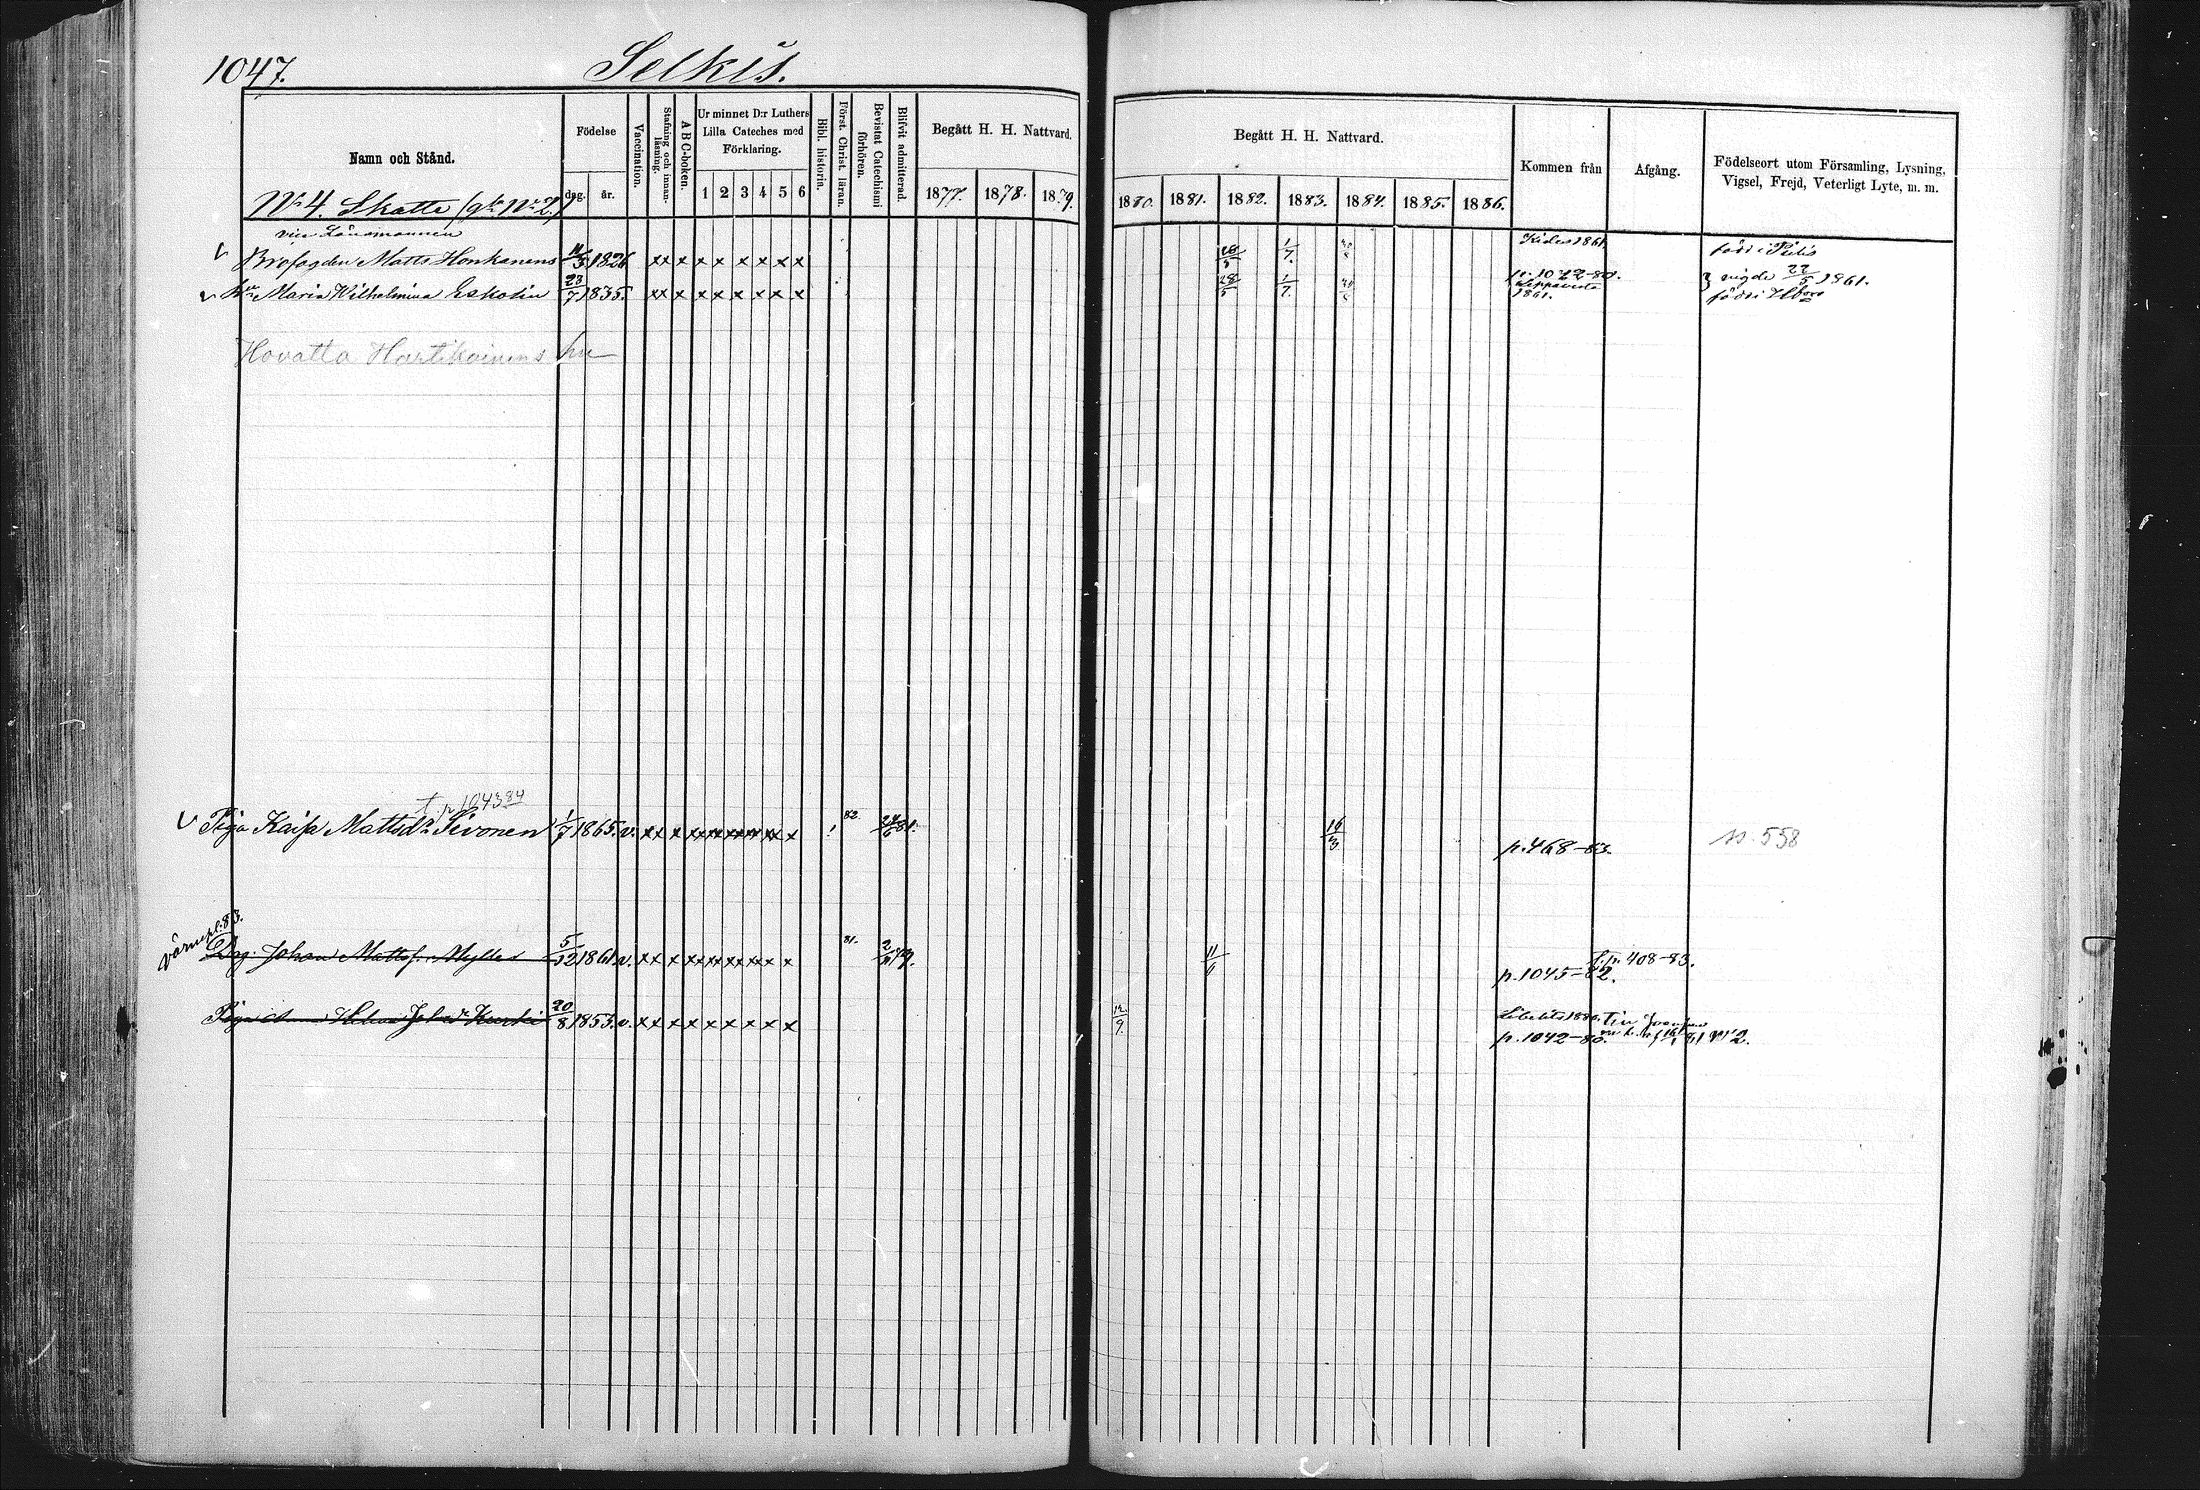 1047.
Selkis.
Namn och Stånd.
Födelse
dag.
år.
Vaccination.
Stafning och innanläsning.
A B C-boken.
Ur minnet D:r Luthers Lilla Cateches med Förklaring.
1 2 3 4 5 6
Bibl. historia.
Först. Christ. läran.
Bevistat Catechismi förhören.
Blifvit admitterad.
Begått H. H. Nattvard.
1877. 1878. 1879.
Begått H. H. Nattvard.
1880. 1881. 1882. 1883. 1884. 1885. 1886.
Kommen från
Afgång.
Födelseort utom Församling, Lysning, Vigsel, Frejd, Veterligt Lyte, m. m.
No 4. Skatte
vice Länsmannen
Brofogden Matts Honkanens 1826 x x x x x x x x x 1/7 Kides 1861. född i
Maria Wilhelmina Eskolin 23/7 1835. x x x x x x x x x 28/5 1/7 p. 1022-80. 1861. vigde 22/5 1861. född i
Hovatta Hartikainens
p 1043 84
Piga Kaisa Mattsdr Sivonen 1/7 1865. v. x x x x x x x x x 82 16/3 p. 468-83. p. 558
värnepl. 83.
Drg. Johan Matts. 5/12 1861. v. x x x x x x x x x 81. 11/6 p. 1045-82. t. p. 408-83.
Piga Helena 20/8 1853. v. x x x x x x x x x 12/9. 1880. p. 1042-80. No 2.